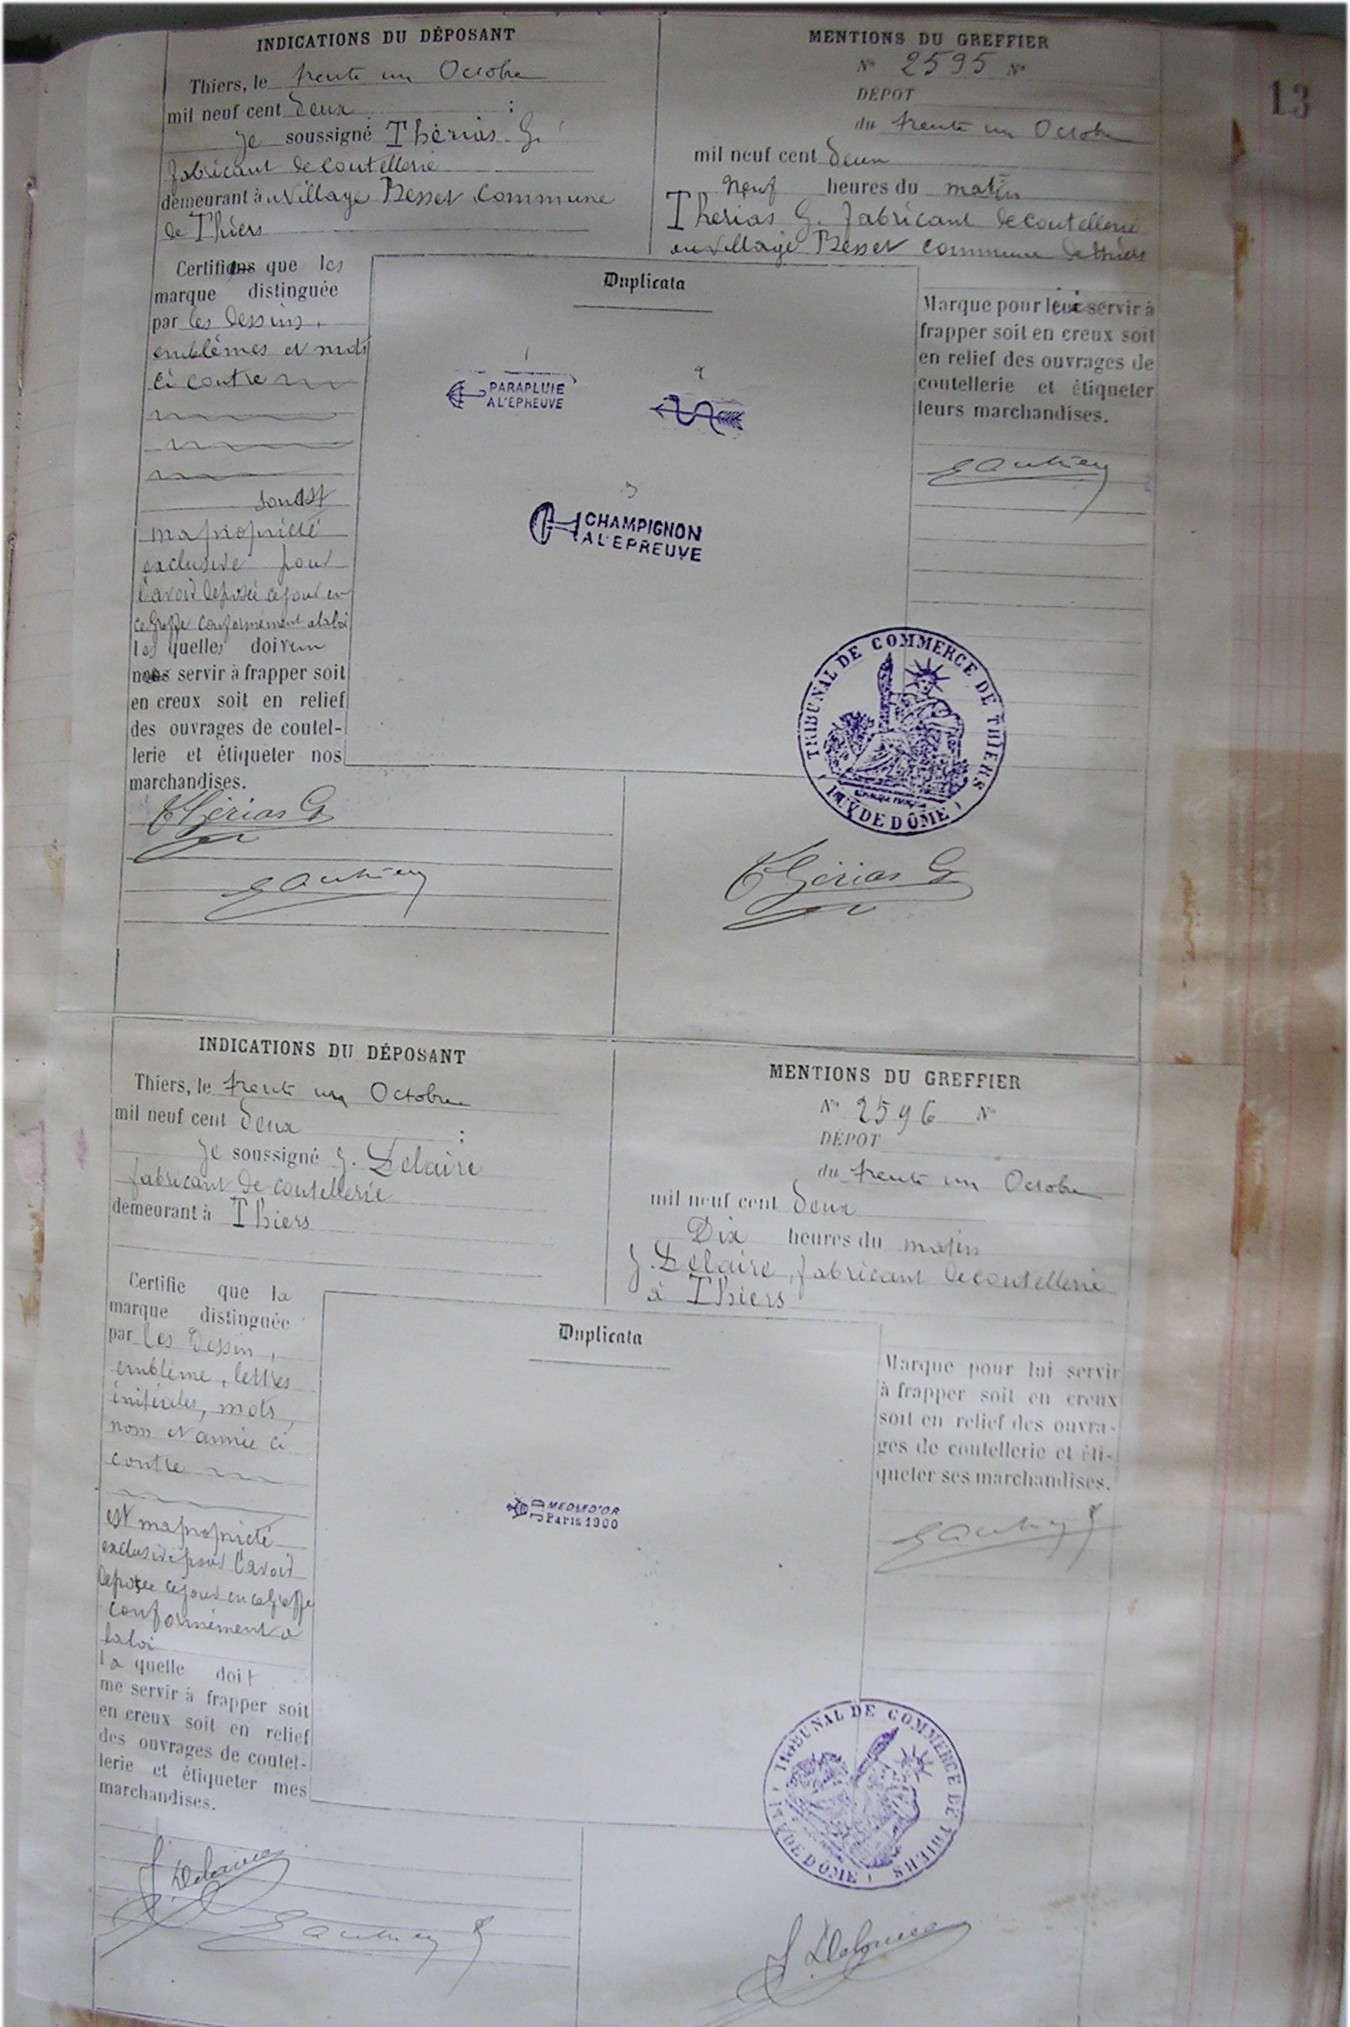 13
INDICATIONS DU DÉPOSANT
Thiers, le trente un Octobre
mil neuf cent deux ;
Je soussigné Thérias G.
fabricant de coutellerie
demeurant à u village Besset commune
de Thiers
Certifions que les
marque distinguée
par les dessins,
emblèmes et mots
ci contre
sont
ma propriété
exclusive pour
l'avoir déposée ce jour en
ce Greffe conformément à la loi
les quelles doivent
servir à frapper soit
en creux soit en relief
des ouvrages de coutel-
lerie et étiqueter nos
marchandises.
Thérias G
Duplicata
1
PARAPLUIE
A L'EPREUVE
2
3
CHAMPIGNON
A L'EPREUVE
MENTIONS DU GREFFIER
N° 2595 N°
DÉPOT
du trente un Octobre
mil neuf cent deux
neuf heures du matin
Thérias G. fabricant de coutellerie
au village Besset commune de Thiers
Marque pour lui servir à
frapper soit en creux soit
en relief des ouvrages de
coutellerie et étiqueter
leurs marchandises.
TRIBUNAL DE COMMERCE DE THIERS
PUY DE DÔME
Thérias G
INDICATIONS DU DÉPOSANT
Thiers, le trente un Octobre
mil neuf cent deux ;
Je soussigné J. Delaire
fabricant de coutellerie
demeurant à Thiers
Certifie que la
marque distinguée
par les Dessin,
emblème, lettres
initiales, mots,
nom et année ci
contre
est ma propriété
exclusive pour l'avoir
déposée ce jour en ce Greffe
conformément à
la loi
la quelle doit
me servir à frapper soit
en creux soit en relief
des ouvrages de coutel-
lerie et étiqueter mes
marchandises.
J. Delaire
Duplicata
MEDLED'OR
Paris 1900
MENTIONS DU GREFFIER
N° 2596 N°
DÉPOT
du trente un Octobre
mil neuf cent deux
Dix heures du matin
J. Delaire, fabricant de coutellerie
à Thiers
Marque pour lui servir
à frapper soit en creux
soit en relief des ouvra-
ges de coutellerie et éti-
queter ses marchandises.
TRIBUNAL DE COMMERCE DE THIERS
PUY DE DÔME
J. Delaire